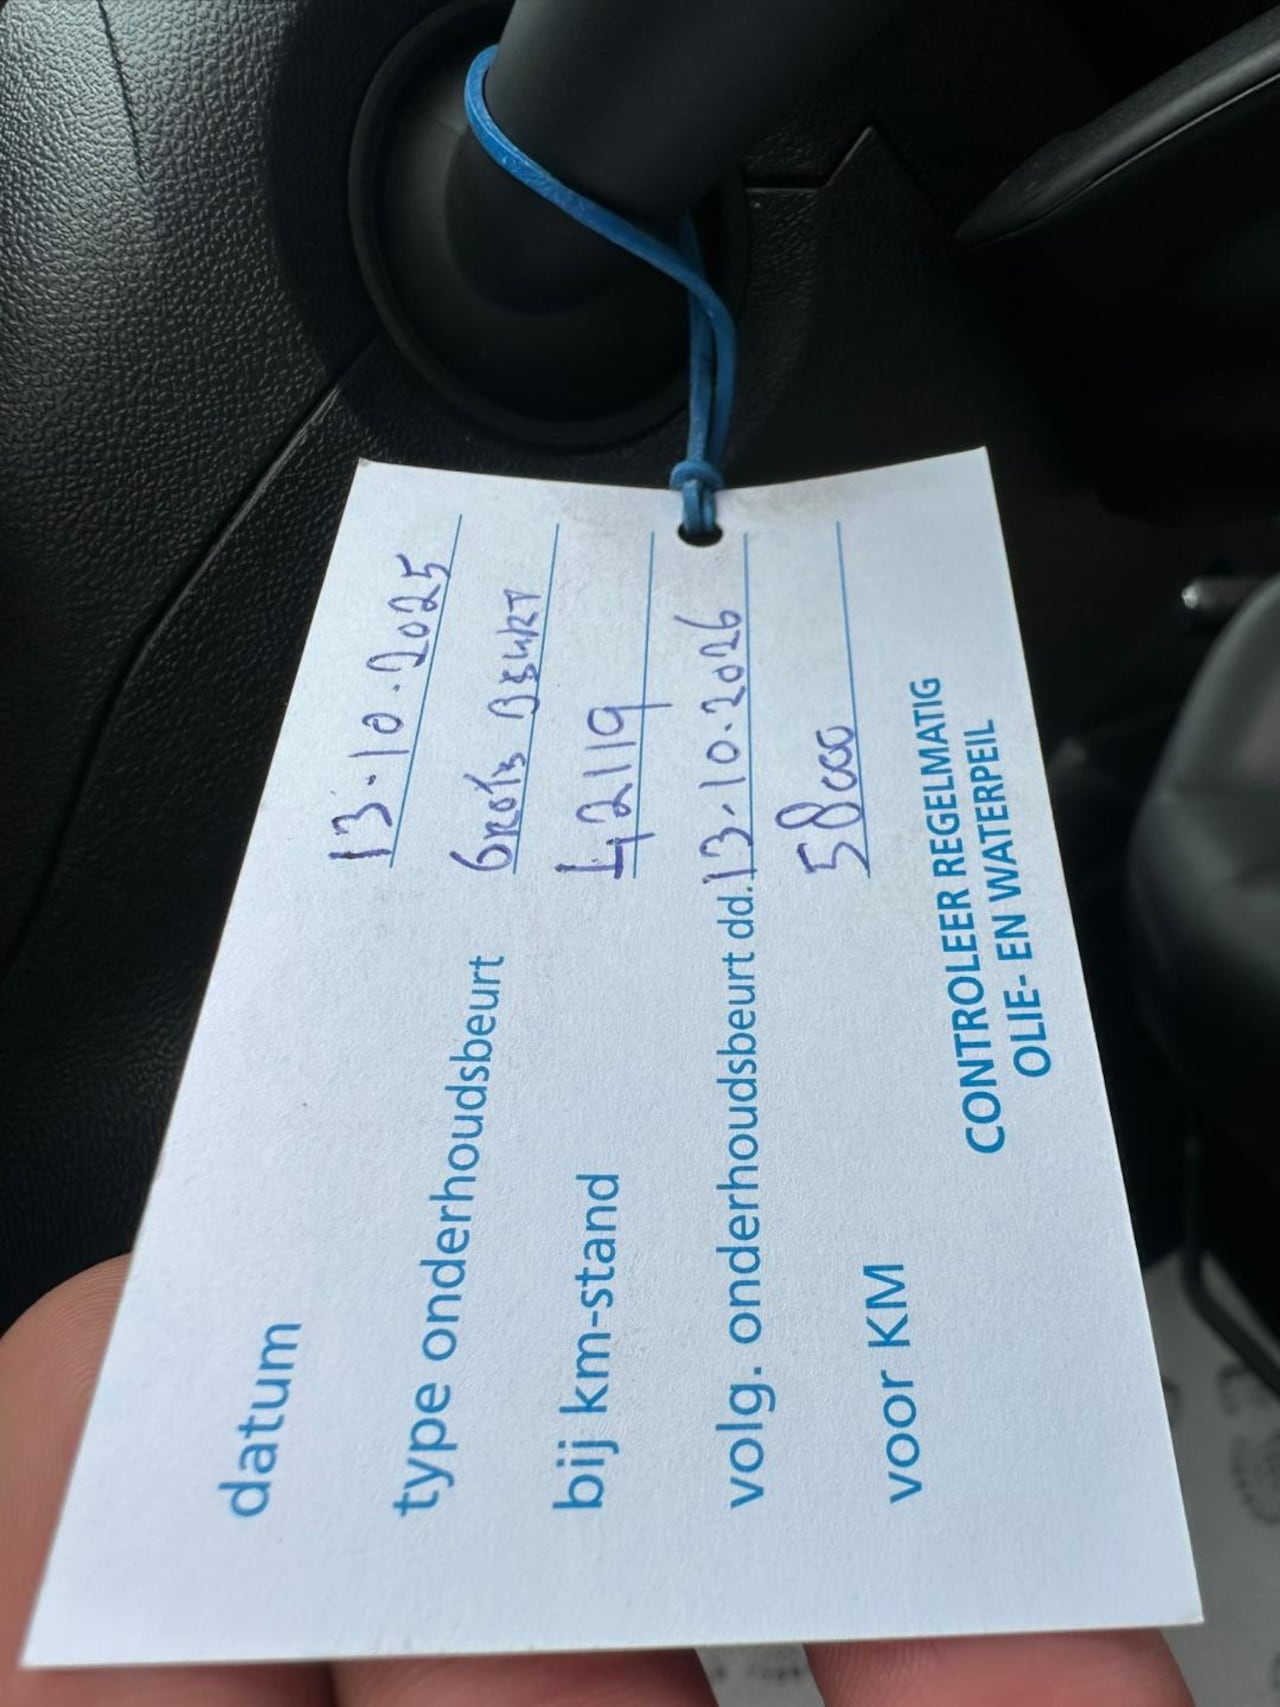 datum 13-10-2025
type onderhoudsbeurt Grote Beurt
bij km-stand 42119
volg. onderhoudsbeurt dd. 13-10-2026
voor KM 58000
CONTROLEER REGELMATIG
OLIE- EN WATERPEIL